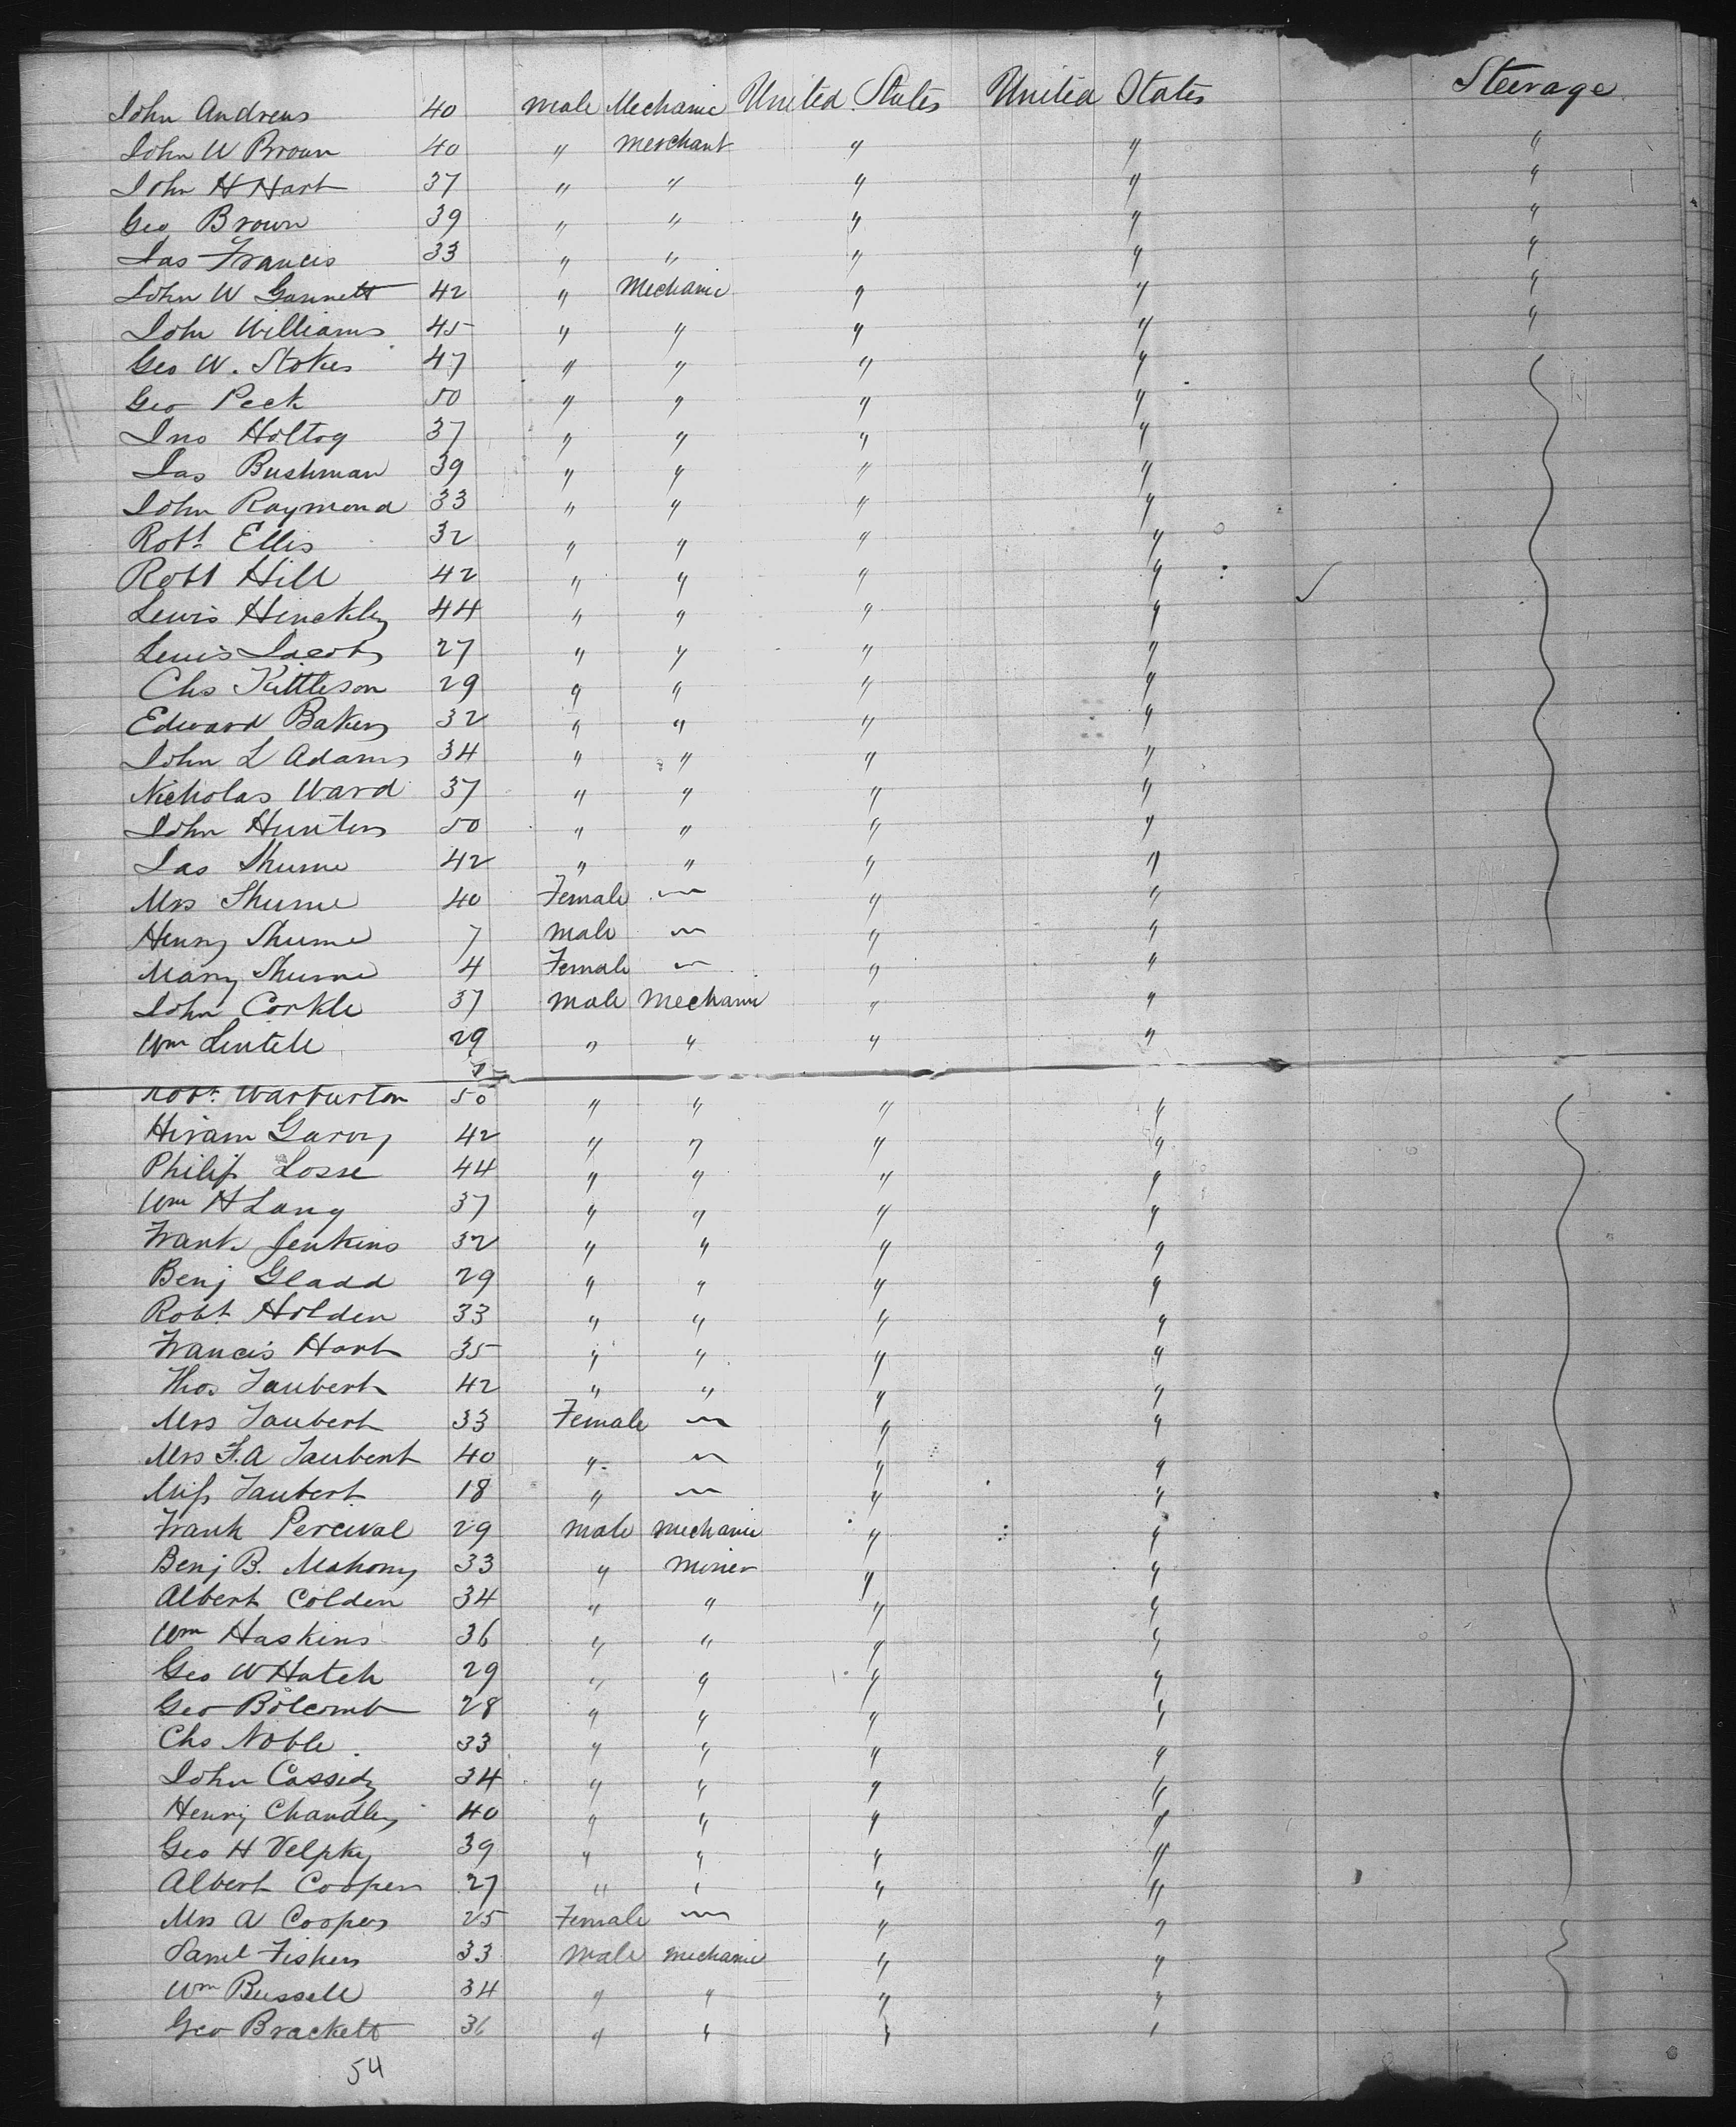 John Andrews 40 Male Mechanic United States United States Steerage
John W Brown 40 " Merchant " " "
John H Hart 37 " " " " "
Geo Brown 39 " " " " "
Jas Francis 33 " " " " "
John W Gannett 42 " Mechanic " " "
John Williams 45 " " " " "
Geo W. Stokes 47 " " " "
Geo Peck 50 " " " "
Jno Holtog 37 " " " "
Jas Bushman 39 " " " "
John Raymond 33 " " " "
Robt Ellis 32 " " " "
Robt Hill 42 " " " "
Lewis Hinckley 44 " " " "
Lewis Jacobs 27 " " " "
Chs Kittleson 29 " " " "
Edward Baker 32 " " " "
John L Adams 34 " " " "
Nicholas Ward 37 " " " "
John Hunter 50 " " " "
Jas Shume 42 " " " "
Mrs Shume 40 Female — " "
Henry Shume 7 Male — " "
Mary Shume 4 Female — " "
John Corkle 37 Male Mechanic " "
Wm Lentell 29 " " " "
Robt Warburton 50 " " " "
Hiram Garvy 42 " " " "
Philip Losse 44 " " " "
Wm H Lang 37 " " " "
Frank Jenkins 32 " " " "
Benj Gladd 29 " " " "
Robt Holden 33 " " " "
Francis Hart 35 " " " "
Thos Taubert 42 " " " "
Mrs Taubert 33 Female — " "
Mrs F.A Taubert 40 " — " "
Miss Taubert 18 " — " "
Frank Percival 29 Male Mechanic " "
Benj B. Mahony 33 " Miner " "
Albert Colden 34 " " " "
Wm Haskins 36 " " " "
Geo W Hatch 29 " " " "
Geo Bolcomb 28 " " " "
Chs Noble 33 " " " "
John Cassidy 34 " " " "
Henry Chandley 40 " " " "
Geo H Velpky 39 " " " "
Albert Cooper 27 " " " "
Mrs A Cooper 25 Female — " "
Saml Fisher 33 Male Mechanic " "
Wm Bussell 34 " " " "
Geo Brackett 36 " " " "
54